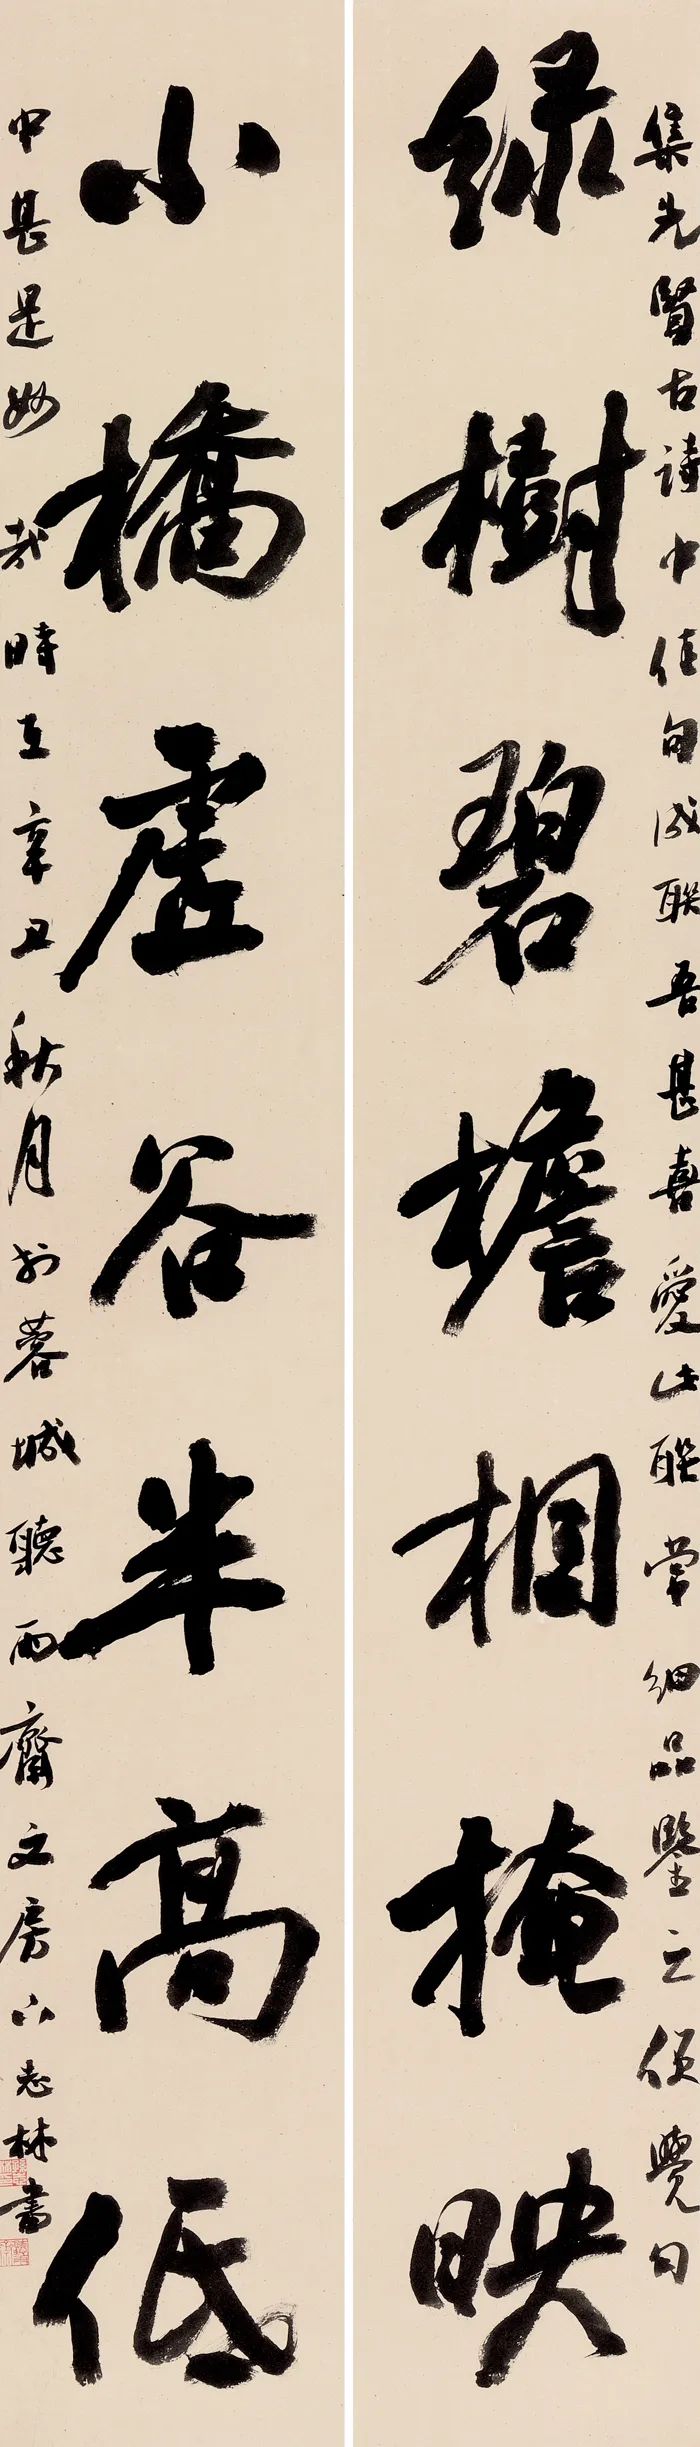 集先賢古詩中佳句成聯吾甚喜愛此聯常細品鑒之便覺句
綠樹碧檐相掩映
小橋虛谷半高低
中甚是妙哉時在辛丑秋月於蓉城聽雨齋文房下志林書